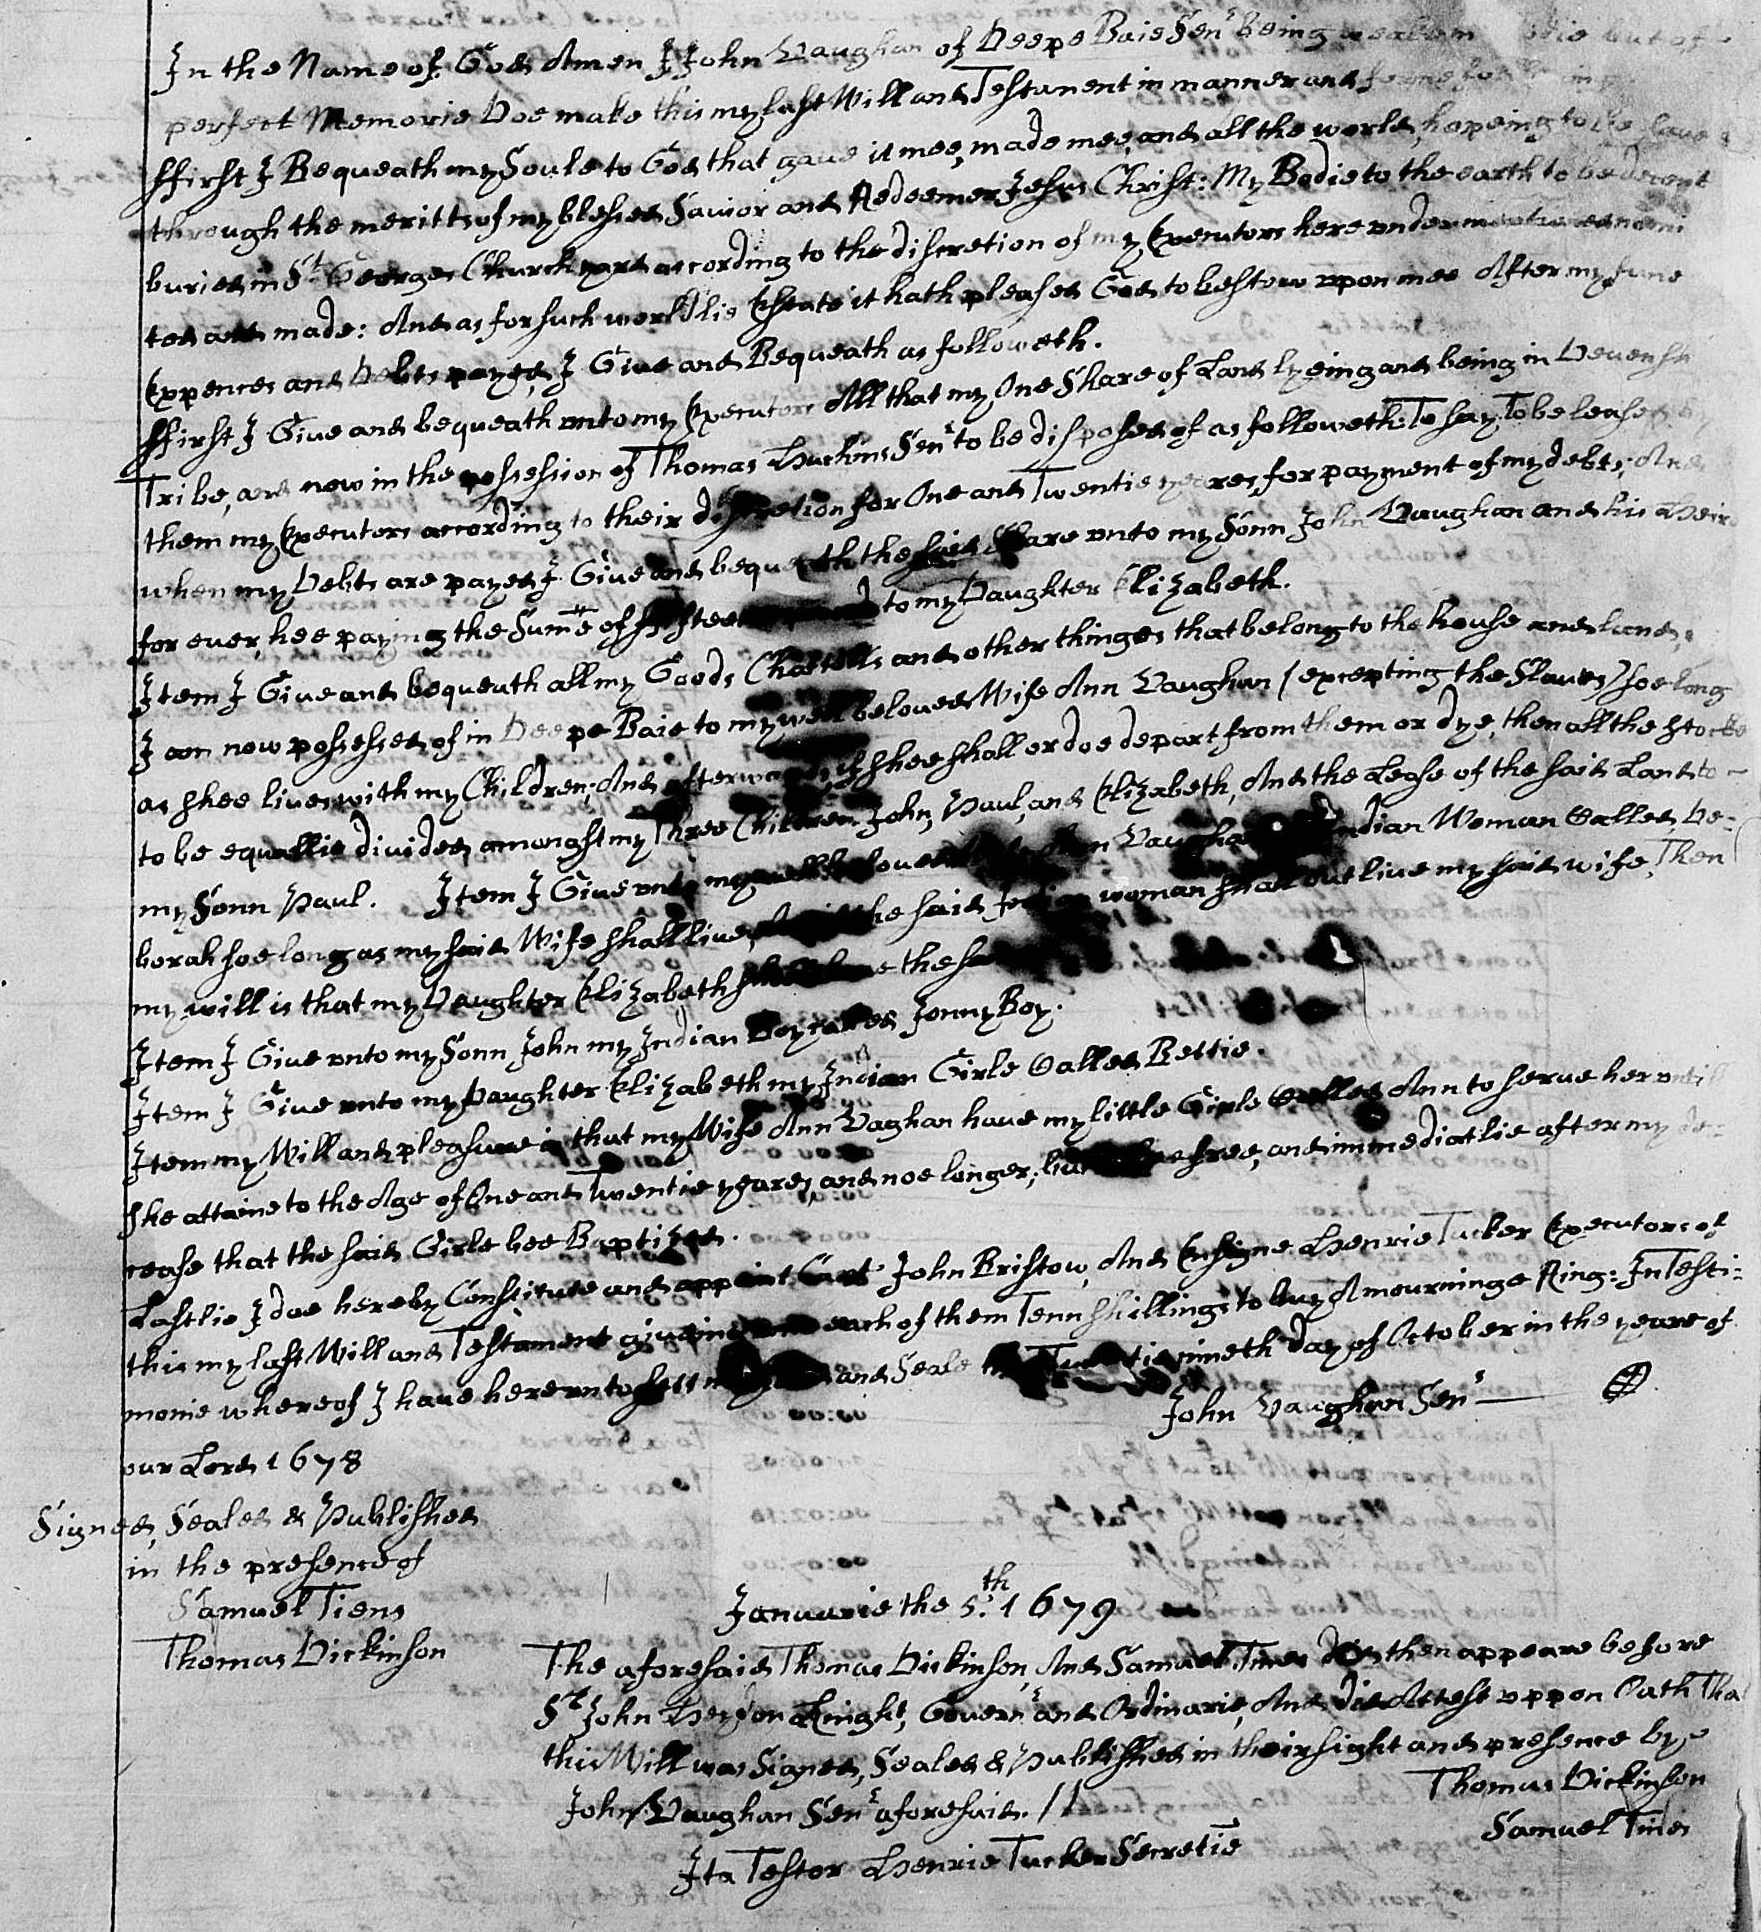 In the Name of God Amen I John Vaughan of Deepe Baie Senr being weake in bodie but of
perfect Memorie Doe make this my last Will and Testament in manner and forme following
ffirst I Bequeath my Soule to God that gave it mee, made mee, and all the world, hopeing to be saved
through the meritts of my blessed Savior and Redeemer Jesus Christ: My Bodie to the earth to be decent
buried in St Georges Church yard according to the discretion of my Executors here under mentioned nomi
ted and made: And as for such worldlie Estate it hath pleased God to bestow uppon mee After my fune
Expences and Debts payed, I Give and Bequeath as followeth.
ffirst I Give and bequeath unto my Executors All that my One Share of Land lyeing and being in Devonsh
Tribe, and now in the possession of Thomas Huchins Senr to be disposed of as followeth: To say, To be leased by
them my Executors according to their discretion for One and Twentie yeares, for payment of my debts; And
when my Debts are payed I Give and bequeath the said Share unto my Sonn John Vaughan and his Heirs
for ever, hee paying the Sume of ffifteen to my Daughter Elizabeth.
Item I Give and bequeath all my Goods Chattells and other thinges that belong to the house and land,
I am now possessed of in Deepe Baie to my well beloved Wife Ann Vaughan (excepting the Slaves) soe long
as shee lives with my Children; And afterwards, if shee shall or doe depart from them or dye, then all the stocke
to be equallie divided amongst my Three Children John, Paul, and Elizabeth, And the Lease of the said Land to
my Sonn Paul. Item I Give unto my well beloved Ann Vaughan Indian Woman Called De-
borah soe long as my said Wife shall live, the said Indian woman shall out live my said wife, Then
my will is that my Daughter Elizabeth shall have the
Item I Give unto my Sonn John my Indian Boy called Jonny Boy.
Item I Give unto my Daughter Elizabeth my Indian Girle Called Bettie.
Item my Will and pleasure is that my Wife Ann Vaghan have my little Girle Called Ann to serve her untill
she attaine to the Age of One and Twentie yeares, and noe longer; but free, and immediatlie after my de-
cease that the said Girle bee Baptized.
Lastlie I doe hereby Constitute and appoint Capt John Bristow, And Ensigne Henrie Tucker Executors of
this my last Will and Testament giveing unto each of them Tenn shillings to buy A mourninge Ring: In Testi-
monie whereof I have hereunto sett my and Seale the Twentie nineth day of October in the yeare of
our Lord 1678
John Vaughan Senr
Signed, Sealed & Published
in the presence of
Samuel Tiens
Thomas Dickinson
Januarie the 5th. 1679
The aforesaid Thomas Dickinson, And Samuel Tines did then appeare before
Sr John Heydon Knight, Governr and Ordinarie, And did Attest uppon Oath Tha
this Will was Signed, Sealed & Published in their sight and presence by
John Vaughan Senr aforesaid. //
Thomas Dickinson
Samuel Tines
Ita Testor Henrie Tucker Secretie